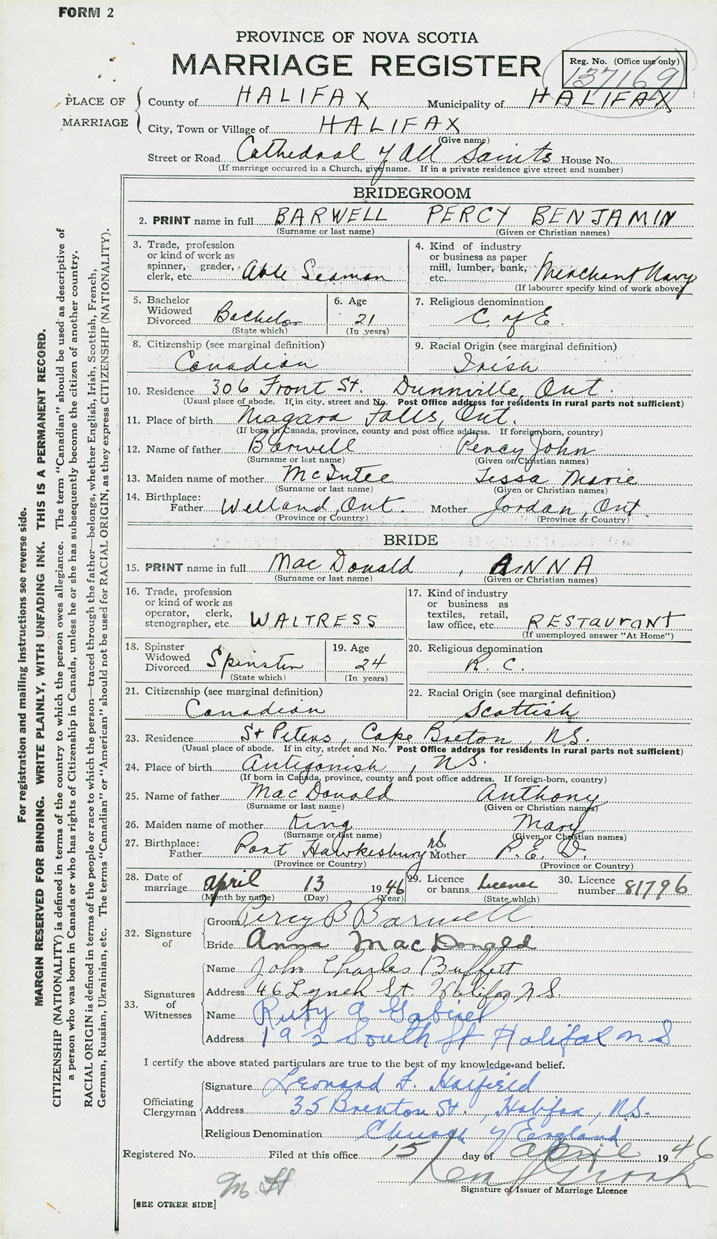 FORM 2
PROVINCE OF NOVA SCOTIA
MARRIAGE REGISTER
Reg. No. (Office use only)
137169
PLACE OF MARRIAGE
County of HALIFAX Municipality of HALIFAX
City, Town or Village of HALIFAX
(Give name)
Street or Road Cathedral of All Saints House No.
(If marriage occurred in a Church, give name. If in a private residence give street and number)
BRIDEGROOM
2. PRINT name in full BARWELL PERCY BENJAMIN
(Surname or last name) (Given or Christian names)
3. Trade, profession or kind of work as spinner, grader, clerk, etc. Able Seaman
4. Kind of industry or business as paper mill, lumber, bank, etc. Merchant Navy
(If labourer specify kind of work above)
5. Bachelor Widowed Divorced Bachelor
(State which)
6. Age 21
(In years)
7. Religious denomination
C. of E.
8. Citizenship (see marginal definition)
Canadian
9. Racial Origin (see marginal definition)
Irish
10. Residence 306 Front St. Dunnville, Ont.
(Usual place of abode. If in city, street and No. Post Office address for residents in rural parts not sufficient)
11. Place of birth Niagara Falls, Ont.
(If born in Canada, province, county and post office address. If foreign-born, country)
12. Name of father Barwell Percy John
(Surname or last name) (Given or Christian names)
13. Maiden name of mother McIntee Tessa Marie
(Surname or last name) (Given or Christian names)
14. Birthplace: Father Welland, Ont. Mother Jordan, Ont.
(Province or Country) (Province or Country)
BRIDE
15. PRINT name in full Mac Donald, ANNA
(Surname or last name) (Given or Christian names)
16. Trade, profession or kind of work as operator, clerk, stenographer, etc. WAITRESS
17. Kind of industry or business as textiles, retail, law office, etc. RESTAURANT
(If unemployed answer "At Home")
18. Spinster Widowed Divorced Spinster
(State which)
19. Age 24
(In years)
20. Religious denomination
R. C.
21. Citizenship (see marginal definition)
Canadian
22. Racial Origin (see marginal definition)
Scottish
23. Residence St Peters, Cape Breton, N.S.
(Usual place of abode. If in city, street and No. Post Office address for residents in rural parts not sufficient)
24. Place of birth Antigonish, N.S.
(If born in Canada, province, county and post office address. If foreign-born, country)
25. Name of father MacDonald Anthony
(Surname or last name) (Given or Christian names)
26. Maiden name of mother King Mary
(Surname or last name) (Given or Christian names)
27. Birthplace: Father Port Hawkesbury N.S. Mother P.E.I.
(Province or Country) (Province or Country)
28. Date of marriage April 13 1946
(Month by name) (Day) (Year)
29. Licence or banns License
(State which)
30. Licence number 81796
32. Signature of
Groom Percy B Barwell
Bride Anna MacDonald
33. Signatures of Witnesses
Name John Charles Buffett
Address 46 Lynch St Halifax N.S.
Name Ruby A Gabriel
Address 192 South St Halifax N S
I certify the above stated particulars are true to the best of my knowledge and belief.
Officiating Clergyman
Signature Leonard F. Hatfield
Address 35 Brenton St., Halifax, N.S.
Religious Denomination Church of England
Registered No. Filed at this office 15 day of April 1946
Signature of Issuer of Marriage Licence
M. H
[SEE OTHER SIDE]
For registration and mailing instructions see reverse side.
MARGIN RESERVED FOR BINDING. WRITE PLAINLY, WITH UNFADING INK. THIS IS A PERMANENT RECORD.
CITIZENSHIP (NATIONALITY) is defined in terms of the country to which the person owes allegiance. The term "Canadian" should be used as descriptive of
a person who was born in Canada or who has rights of Citizenship in Canada, unless he or she has subsequently become the citizen of another country.
RACIAL ORIGIN is defined in terms of the people or race to which the person—traced through the father—belongs, whether English, Irish, Scottish, French,
German, Russian, Ukrainian, etc. The terms "Canadian" or "American" should not be used for RACIAL ORIGIN, as they express CITIZENSHIP (NATIONALITY).